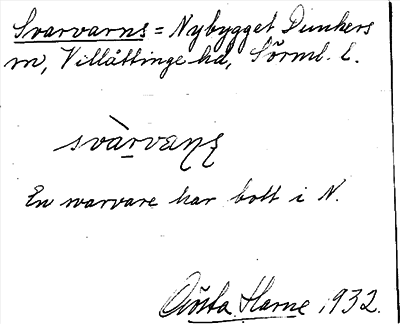 Svarvarns = Nybygget Dunkers
sn, Villåttinge hd, Sörml. l.
svàrvanz
En svarvare har bott i N.
Gösta Harne, 1932.